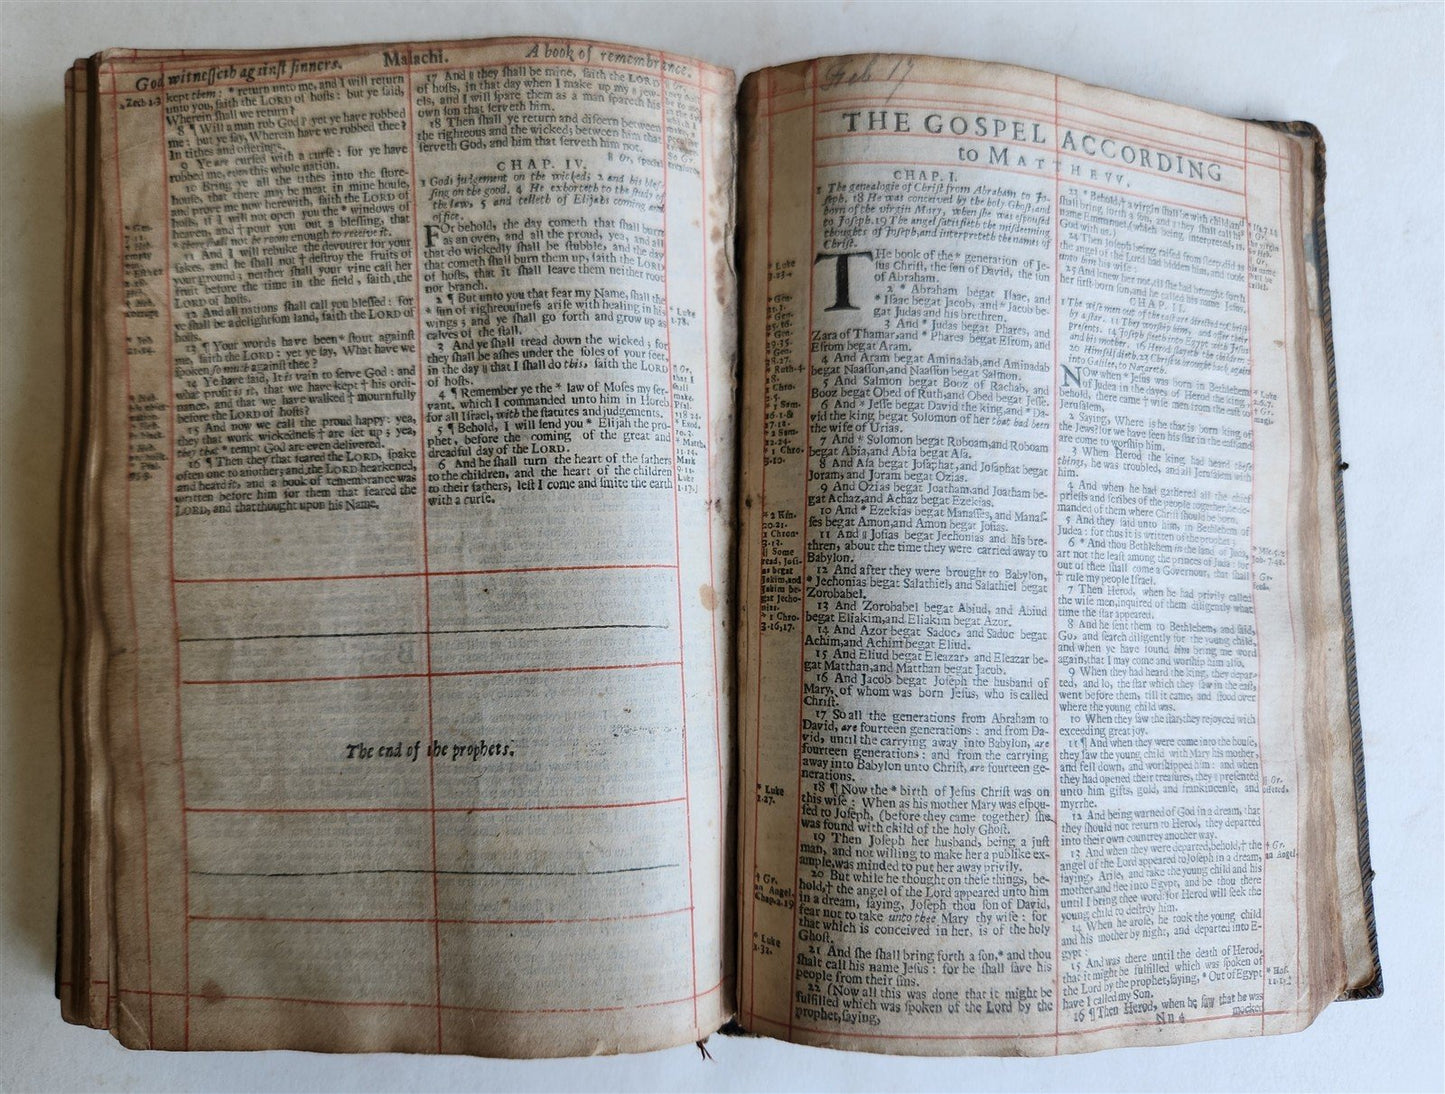 God witnesseth against sinners. Malachi. A book of remembrance.
kept them: * return unto me, and I will return
unto you, saith the LORD of hosts: but ye said,
Wherein shall we return?
8 ¶ Will a man rob God? yet ye have robbed
me: but ye say, Wherein have we robbed thee?
In tithes and offerings.
9 Ye are cursed with a curse: for ye have
robbed me, even this whole nation.
10 Bring ye all the tithes into the store-
house, that there may be meat in mine house,
and prove me now herewith, saith the LORD of
hosts, if I will not open you the * windows of
heaven, and † pour you out a blessing, that
there shall not be room enough to receive it.
11 And I will rebuke the devourer for your
sakes, and he shall not † destroy the fruits of
your ground; neither shall your vine cast her
fruit before the time in the field, saith the
LORD of hosts.
12 And all nations shall call you blessed: for
ye shall be a delightsom land, saith the LORD of
hosts.
13 ¶ Your words have been * stout against
me, saith the LORD: yet ye say, What have we
spoken so much against thee?
14 Ye have said, It is vain to serve God: and
what profit is it, that we have kept † his ordi-
nance, and that we have walked † mournfully
before the LORD of hosts?
15 And now we call the proud happy: yea,
they that work wickedness † are set up; yea,
they that * tempt God are even delivered.
16 ¶ Then they that feared the LORD, spake
often one to another; and the LORD hearkened,
and heard it, and a book of remembrance was
written before him for them that feared the
LORD, and that thought upon his Name.
17 And || they shall be mine, saith the LORD
of hosts, in that day when I make up my || jew-
els, and I will spare them as a man spareth his
own son that serveth him.
18 Then shall ye return and discern between
the righteous and the wicked; between him that
serveth God, and him that serveth him not.
CHAP. IV.
1 Gods judgement on the wicked; 2 and his bles-
sing on the good. 4 He exhorteth to the study of
the law, 5 and telleth of Elijahs coming and
office.
FOr behold, the day cometh that shall burn
as an oven, and all the proud, yea, and all
that do wickedly shall be stubble, and the day
that cometh shall burn them up, saith the LORD
of hosts, that it shall leave them neither root
nor branch.
2 ¶ But unto you that fear my Name, shall the
* sun of righteousness arise with healing in his
wings; and ye shall go forth and grow up as
calves of the stall.
3 And ye shall tread down the wicked; for
they shall be ashes under the soles of your feet,
in the day || that I shall do this, saith the LORD
of hosts.
4 ¶ Remember ye the * law of Moses my ser-
vant, which I commanded unto him in Horeb
for all Israel, with the statutes and judgements.
5 ¶ Behold, I will send you * Elijah the pro-
phet, before the coming of the great and
dreadful day of the LORD.
6 And he shall turn the heart of the fathers
to the children, and the heart of the children
to their fathers, lest I come and smite the earth
with a curse.
* Luke
1.78.
The end of the prophets.
Feb 17
THE GOSPEL ACCORDING
to MATTHEVV.
CHAP. I.
1 The genealogie of Christ from Abraham to Jo-
seph. 18 He was conceived by the holy Ghost, and
born of the virgin Mary, when she was espoused
to Joseph. 19 The angel satisfieth the misdeeming
thoughts of Joseph, and interpreteth the names of
Christ.
THe book of the * generation of Je-
sus Christ, the son of David, the son
of Abraham.
2 * Abraham begat Isaac, and
* Isaac begat Jacob, and * Jacob be-
gat Judas and his brethren.
3 And * Judas begat Phares, and
Zara of Thamar, and * Phares begat Esrom, and
Esrom begat Aram.
4 And Aram begat Aminadab, and Aminadab
begat Naasson, and Naasson begat Salmon.
5 And Salmon begat Booz of Rachab, and
Booz begat Obed of Ruth, and Obed begat Jesse.
6 And * Jesse begat David the king, and * Da-
vid the king begat Solomon of her that had been
the wife of Urias.
7 And * Solomon begat Roboam, and Roboam
begat Abia, and Abia begat Asa.
8 And Asa begat Josaphat, and Josaphat begat
Joram, and Joram begat Ozias.
9 And Ozias begat Joatham, and Joatham be-
gat Achaz, and Achaz begat Ezekias.
10 And * Ezekias begat Manasses, and Manas-
ses begat Amon, and Amon begat Josias.
11 And || Josias begat Jechonias and his bre-
thren, about the time they were carried away to
Babylon.
12 And after they were brought to Babylon,
* Jechonias begat Salathiel, and Salathiel begat
Zorobabel.
13 And Zorobabel begat Abiud, and Abiud
begat Eliakim, and Eliakim begat Azor.
14 And Azor begat Sadoc, and Sadoc begat
Achim, and Achim begat Eliud.
15 And Eliud begat Eleazar, and Eleazar be-
gat Matthan, and Matthan begat Jacob.
16 And Jacob begat Joseph the husband of
Mary, of whom was born Jesus, who is called
Christ.
17 So all the generations from Abraham to
David, are fourteen generations: and from Da-
vid, until the carrying away into Babylon, are
fourteen generations: and from the carrying
away into Babylon unto Christ, are fourteen ge-
nerations.
18 ¶ Now the * birth of Jesus Christ was on
this wise: When as his mother Mary was espou-
sed to Joseph, (before they came together) she
was found with child of the holy Ghost.
19 Then Joseph her husband, being a just
man, and not willing to make her a publike ex-
ample, was minded to put her away privily.
20 But while he thought on these things, be-
hold, † the angel of the Lord appeared unto him
in a dream, saying, Joseph thou son of David,
fear not to take unto thee Mary thy wife: for
that which is conceived in her, is of the holy
Ghost.
21 And she shall bring forth a son, * and thou
shalt call his name Jesus: for he shall save his
people from their sins.
22 (Now all this was done that it might be
fulfilled which was spoken of the Lord by the
prophet, saying,
* 2 Kin.
20.21.
1 Chron.
3.12.
|| Some
read, Josi-
as begat
Jakim, and
Jakim be-
gat Jecho-
nias.
* 1 Chro.
3.16,17.
* Luke
1.27.
† Gr.
an Angel.
Chap. 2.19
* Luke
1.31.
23 * Behold, a virgin shall be with child, and
shall bring forth a son, and they shall call his
name Emmanuel, which being interpreted, is,
God with us.)
24 Then Joseph being raised from sleep, did as
the angel of the Lord had bidden him, and took
unto him his wife:
25 And knew her not, till she had brought forth
her first-born son, and he called his name Jesus.
CHAP. II.
1 The wise men out of the east are directed to Christ
by a star. 11 They worship him, and offer their
presents. 14 Joseph fleeth into Egypt with Jesus
and his mother. 16 Herod slayeth the children:
20 Himself dieth. 23 Christ is brought back again
into Galilee, to Nazareth.
NOw when * Jesus was born in Bethlehem
of Judea in the dayes of Herod the king,
behold, there came † wise men from the east to
Jerusalem,
2 Saying, Where is he that is born king of
the Jews? for we have seen his star in the east, and
are come to worship him.
3 When Herod the king had heard these
things, he was troubled, and all Jerusalem with
him.
4 And when he had gathered all the chief
priests and scribes of the people together, he de-
manded of them where Christ should be born.
5 And they said unto him, in Bethlehem of
Judea: for thus it is written of the prophet;
6 * And thou Bethlehem in the land of Juda,
art not the least among the princes of Juda: for
out of thee shall come a Governour, that shall
† rule my people Israel.
7 Then Herod, when he had privily called
the wise men, inquired of them diligently what
time the star appeared.
8 And he sent them to Bethlehem, and said,
Go, and search diligently for the young child,
and when ye have found him bring me word
again, that I may come and worship him also.
9 When they had heard the king, they depar-
ted, and lo, the star which they saw in the east,
went before them, till it came, and stood over
where the young child was.
10 When they saw the star, they rejoyced with
exceeding great joy.
11 ¶ And when they were come into the house,
they saw the young child with Mary his mother,
and fell down, and worshipped him: and when
they had opened their treasures, they || presented
unto him gifts, gold, and frankincense, and
myrrhe.
12 And being warned of God in a dream, that
they should not return to Herod, they departed
into their own countrey another way.
13 And when they were departed, behold, † the
angel of the Lord appeared to Joseph in a dream,
saying, Arise, and take the young child and his
mother, and flee into Egypt, and be thou there
until I bring thee word: for Herod will seek the
young child to destroy him.
14 When he arose, he took the young child
and his mother by night, and departed into E-
gypt:
15 And was there until the death of Herod,
that it might be fulfilled which was spoken of
the Lord by the prophet, saying, * Out of Egypt
have I called my Son.
16 ¶ Then Herod, when he saw that he was
Nn 4 mocked
|| Or,
offered.
† Gr.
an Angel.
* Hos.
11.1.